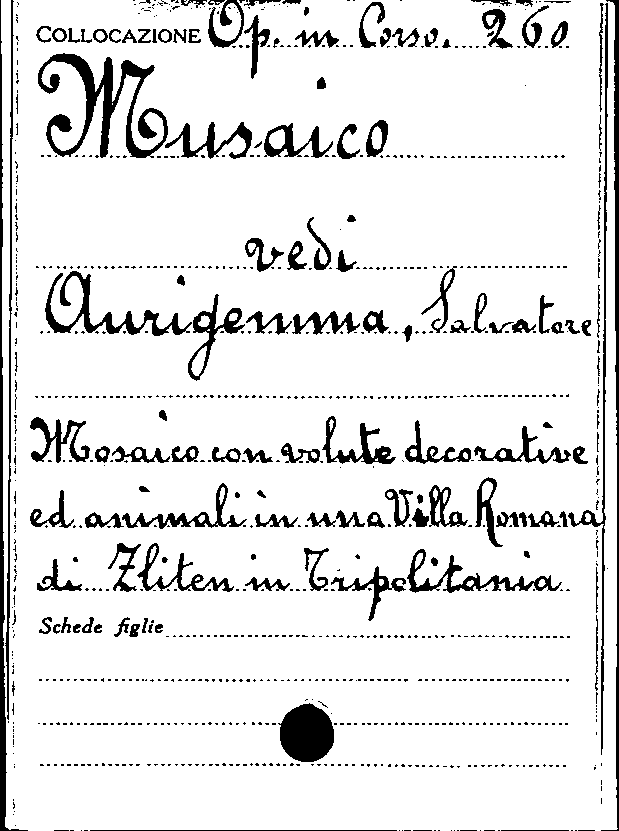 COLLOCAZIONE Op. in Corso. 260
Musaico
vedi
Aurigemma, Salvatore
Mosaico con volute decorative
ed animali in una Villa Romana
di Zliten in Tripolitania
Schede figlie